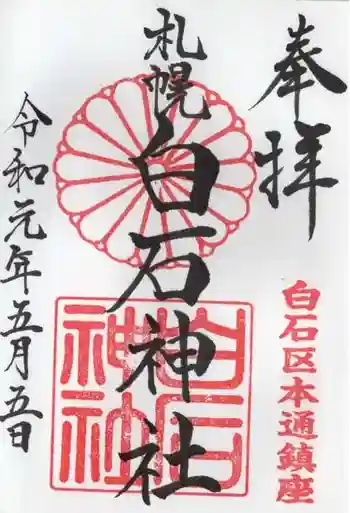 奉拝
白石区本通鎮座
札幌白石神社
白石
神社
令和元年五月五日